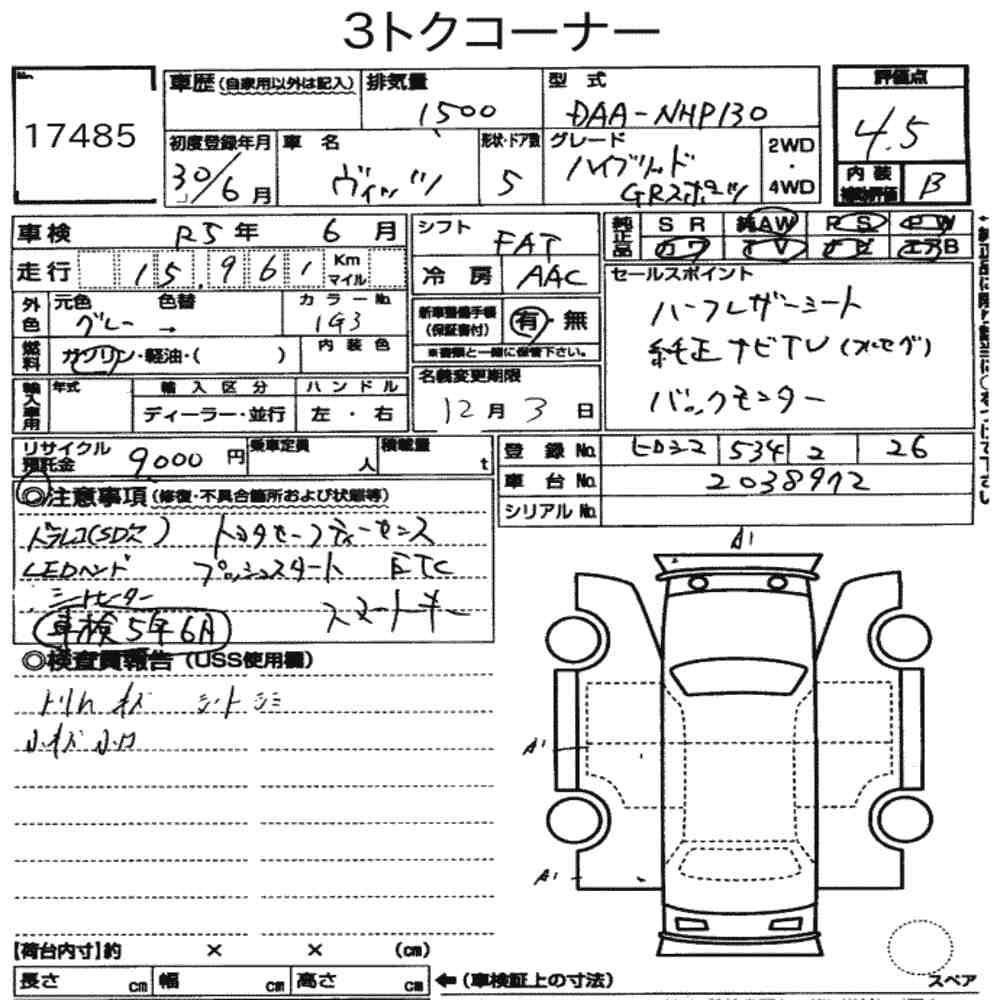 3トクコーナー
No.
17485
車歴(自家用以外は記入)
排気量
1500
型式
DAA-NHP130
評価点
4.5
初度登録年月
30/6月
車名
ヴィッツ
形状・ドア数
5
グレード
ハイブリッド
GRスポーツ
2WD
・
4WD
内装
補助評価
B
車検 R5年 6月
走行 15,961 Km マイル
外色
元色 色替
グレー →
カラーNo.
1G3
燃料
ガソリン・軽油・( )
内装色
輸入車用
年式
輸入区分
ディーラー・並行
ハンドル
左・右
シフト
FAT
冷房 AAC
新車整備手帳
(保証書付)
有・無
※書類と一緒に保管下さい。
名義変更期限
12月3日
純正品
SR 純AW PS PW
カワ TV ナビ エアB
セールスポイント
ハーフレザーシート
純正ナビTV(フルセグ)
バックモニター
リサイクル
預託金
9000円
乗車定員
人
積載量
t
登録No. ヒロシマ 534 2 26
車台No. 2038972
シリアルNo.
◎注意事項(修復・不具合箇所および状態等)
ドラレコ(SD欠) トヨタセーフティーセンス
LEDヘッド プッシュスタート ETC
シートヒーター
スマートキー
車検5年6月
◎検査員報告(USS使用欄)
小キズ 小凹
A1
A1
A1
【荷台内寸】約 × × (cm)
長さ cm 幅 cm 高さ cm ←(車検証上の寸法)
スペア